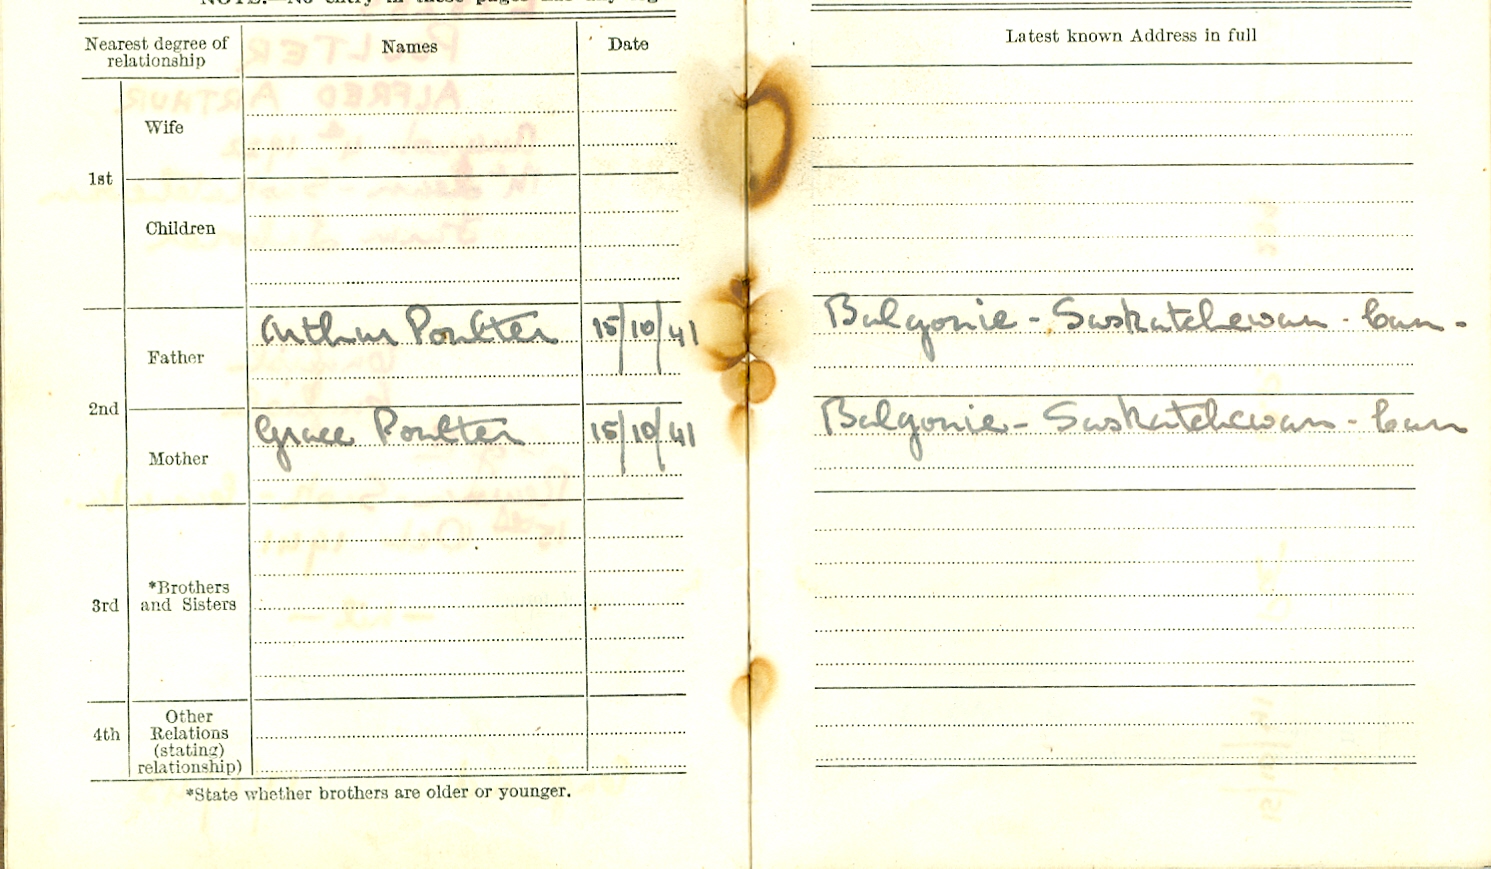 NOTE.—No entry in these pages
Nearest degree of relationship Names Date Latest known Address in full
1st Wife
Children
2nd Father Arthur Poulter 15/10/41 Balgonie - Saskatchewan - Can.
Mother Grace Poulter 15/10/41 Balgonie - Saskatchewan - Can
3rd *Brothers and Sisters
4th Other Relations (stating) relationship)
*State whether brothers are older or younger.